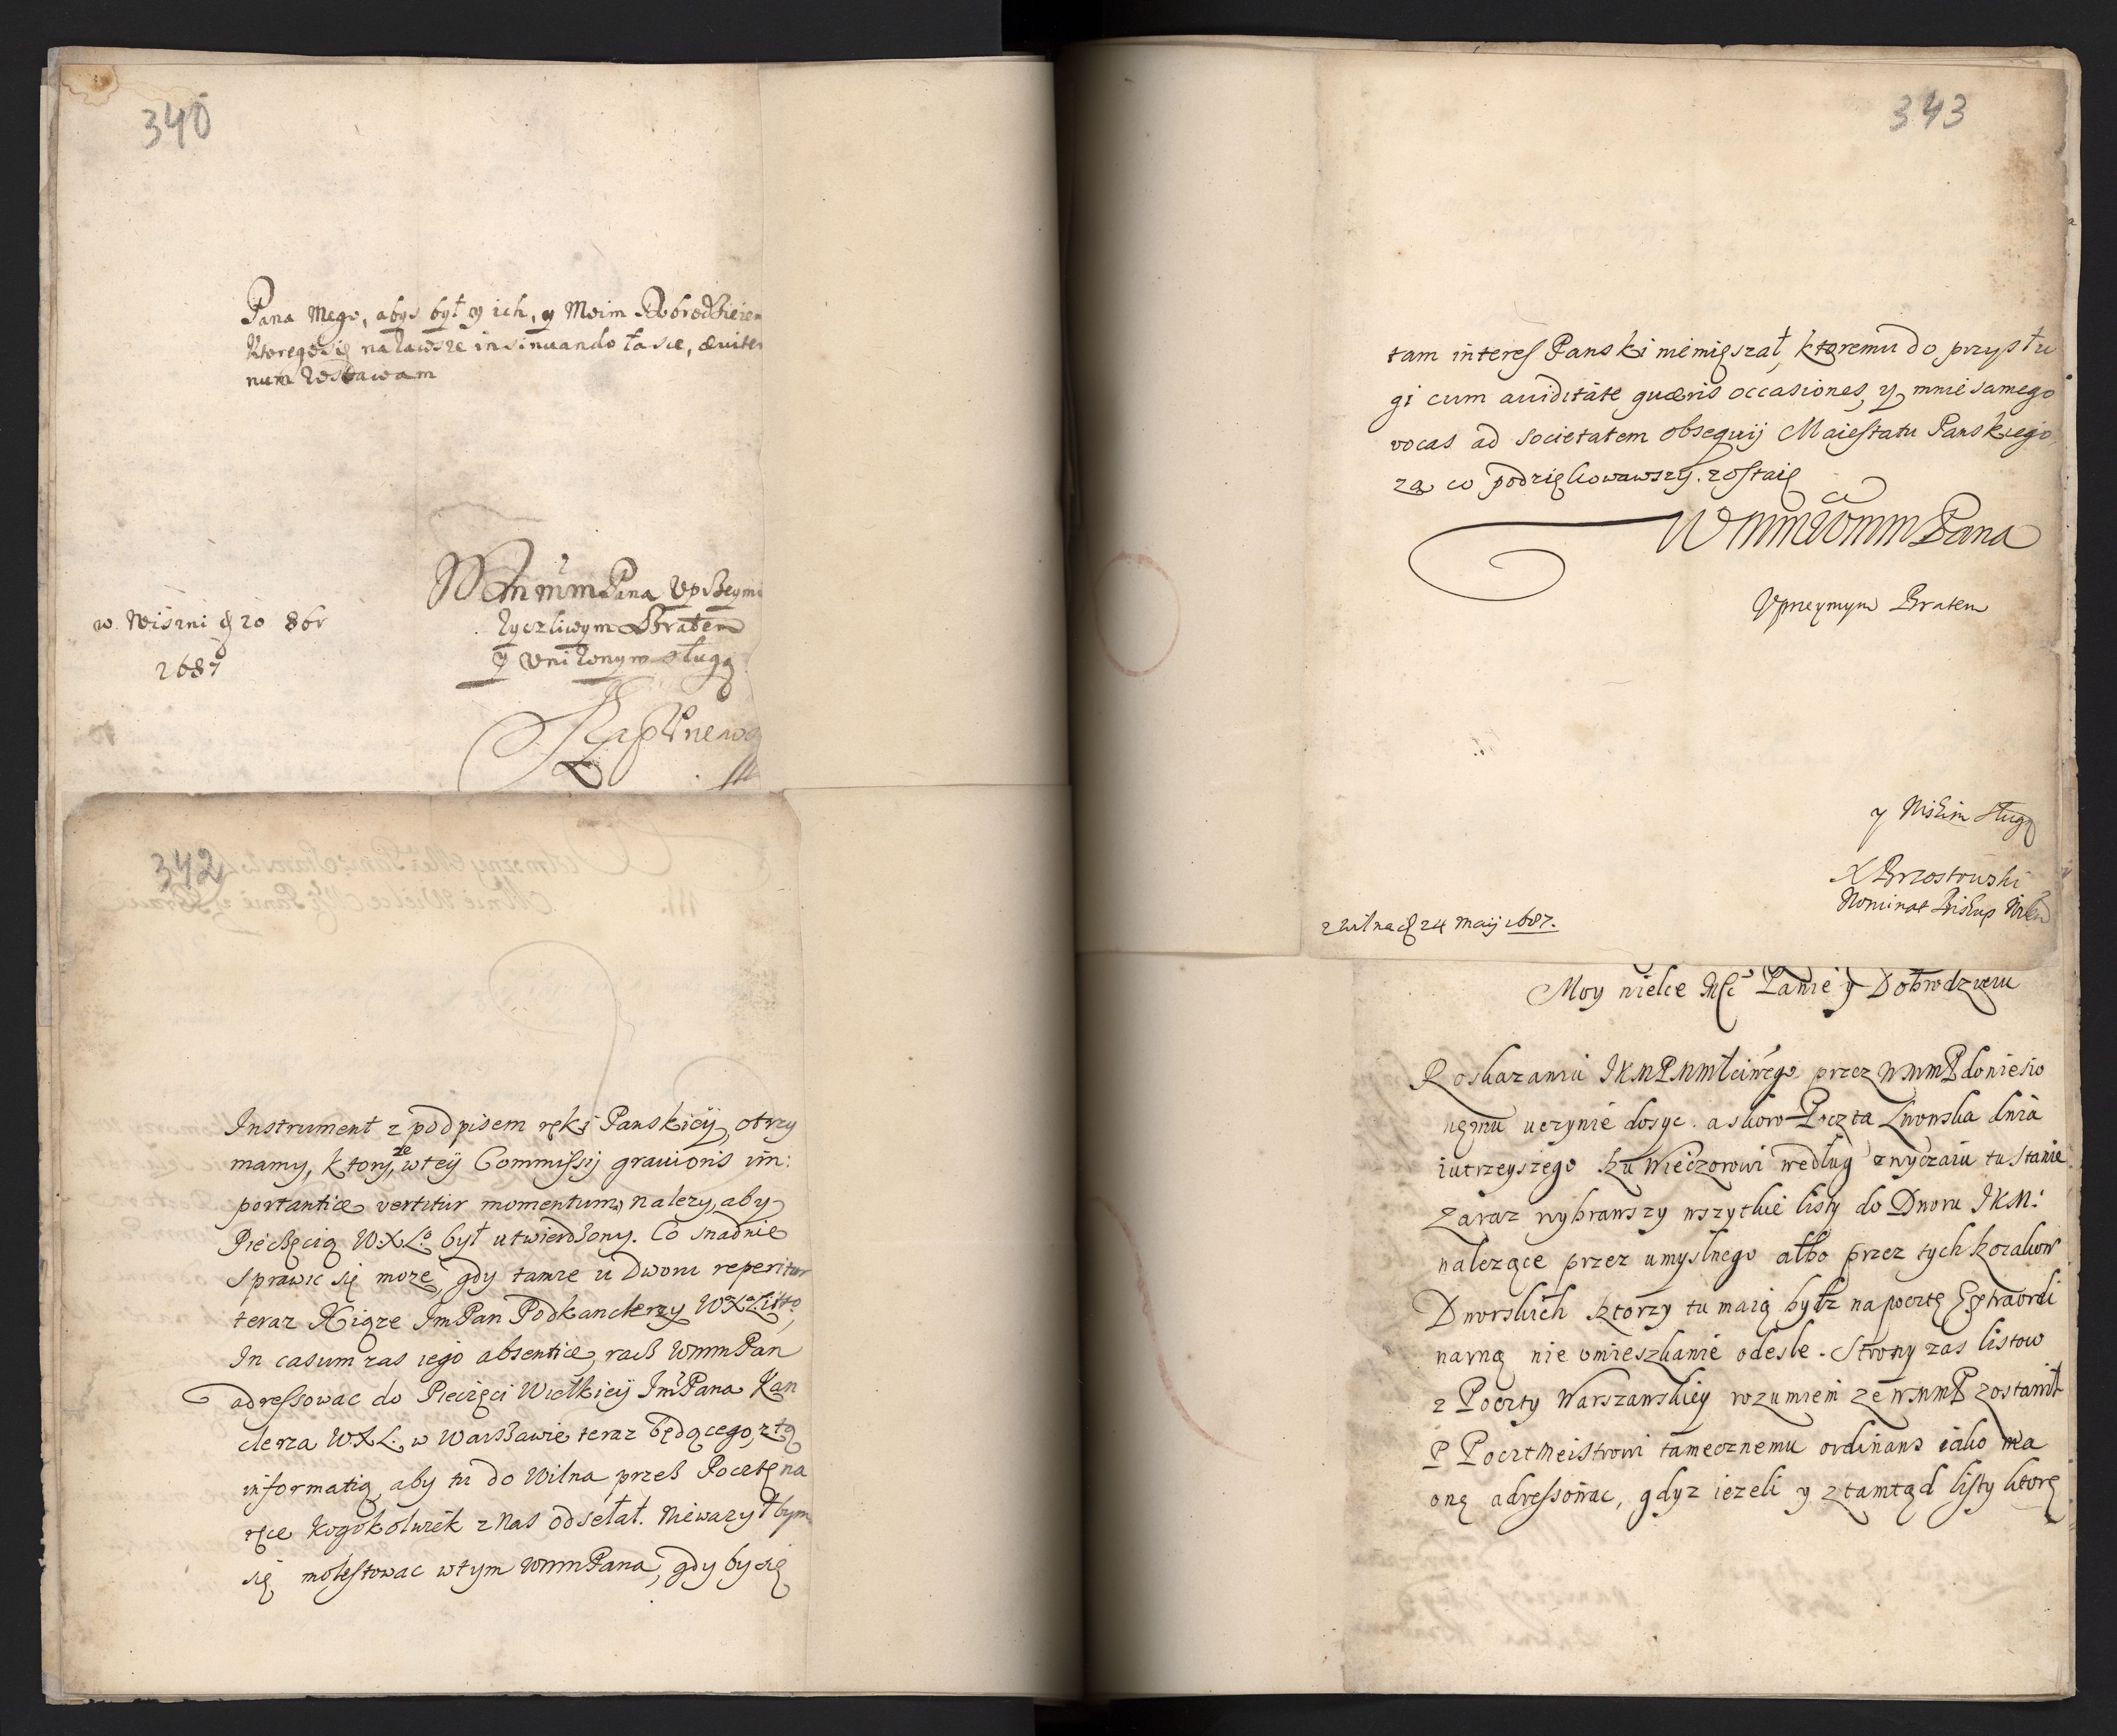 340
Pana Mego, abys był y ich, y Moim Dobrodzieiem
Ktoregosię na zawsze insinuando łasce, æviter
num zostawam
WM mm Pana Vprzeymi
zyczliwym Bratem
y Vnizonym sługą
w Wiszni d 20 8br
1687
342
Instrument z podpisem ręki Panskieij, otrzy
mamy, ktory, że wteij Commissij grauioris im:
portantiæ vertitur momentum, nalezy, aby
Pieczęcią W.X.Lo był utwierdzony. Co snadnie
sprawic się moze, gdy tamze u Dworu reperitur
teraz Xiąze ImPan Podkanclerzy WoXoLitto,
In casum zas iego absentiæ, racz WmmPan
adressowac do Pieczęci Wielkieij ImPana Kan
clerza W.X.L. w Warszawie teraz będącego, z tą
informatią, aby tu do Wilna przez Pocztę na
ręce kogokolwiek z Nas odsełał. Niewazyłbym
się molestowac wtym WmmPana, gdy by się
343
tam interes Panski niemięszał, ktoremu do przysłu
gi cum auiditate quæris occasiones, y mnie samego
vocas ad societatem obsequij Maiestatu Panskiego,
za co podziękowawszy. zostaię
WMMWMM Pana
Vprzeymym Bratem
y Niskim Sługą
X Brzostowski
Nominat Biskup Wilen
z Wilna d 24 Maij 1687.
Moy wielce Mści Panie y Dobrodzieiu
Roskazaniu IKMPNMłciwego przez WMMP doniesio
nęmu uczynie dosyc. a skoro Poczta Lwowska dnia
iutrzeyszego ku Wieczorowi według zwyczaiu tu stanie
Zaraz wybrawszy wszytkie listy do Dworu IKM:
nalezące przez umyslnego albo przez tych kozakow
Dworskich ktorzy tu maią bydz na pocztę Extraordi
narną nie omieszkanie odesle. Strony zas listow
z Poczty Warszawskiey rozumiem ze WMMP zostawił
P Pocztmeistrowi tamecznemu ordinans iako ma
onę adressowac, gdyz iezeli y ztamtąd listy ktorę